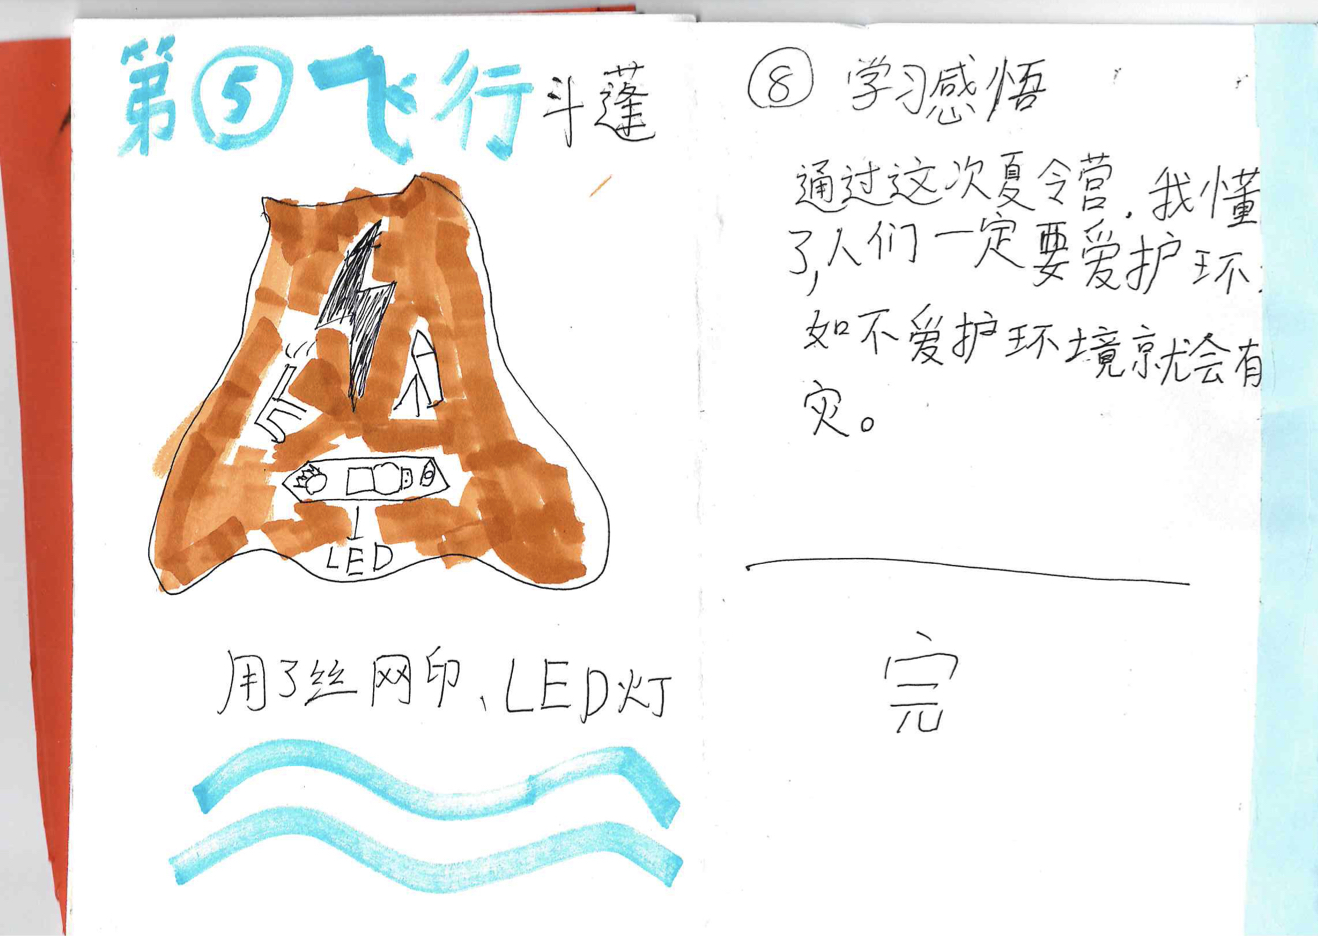 第⑤飞行斗蓬
LED
用了丝网印、LED灯
⑧ 学习感悟
通过这次夏令营,我懂
了,人们一定要爱护环
如不爱护环境就会有
灾。
完